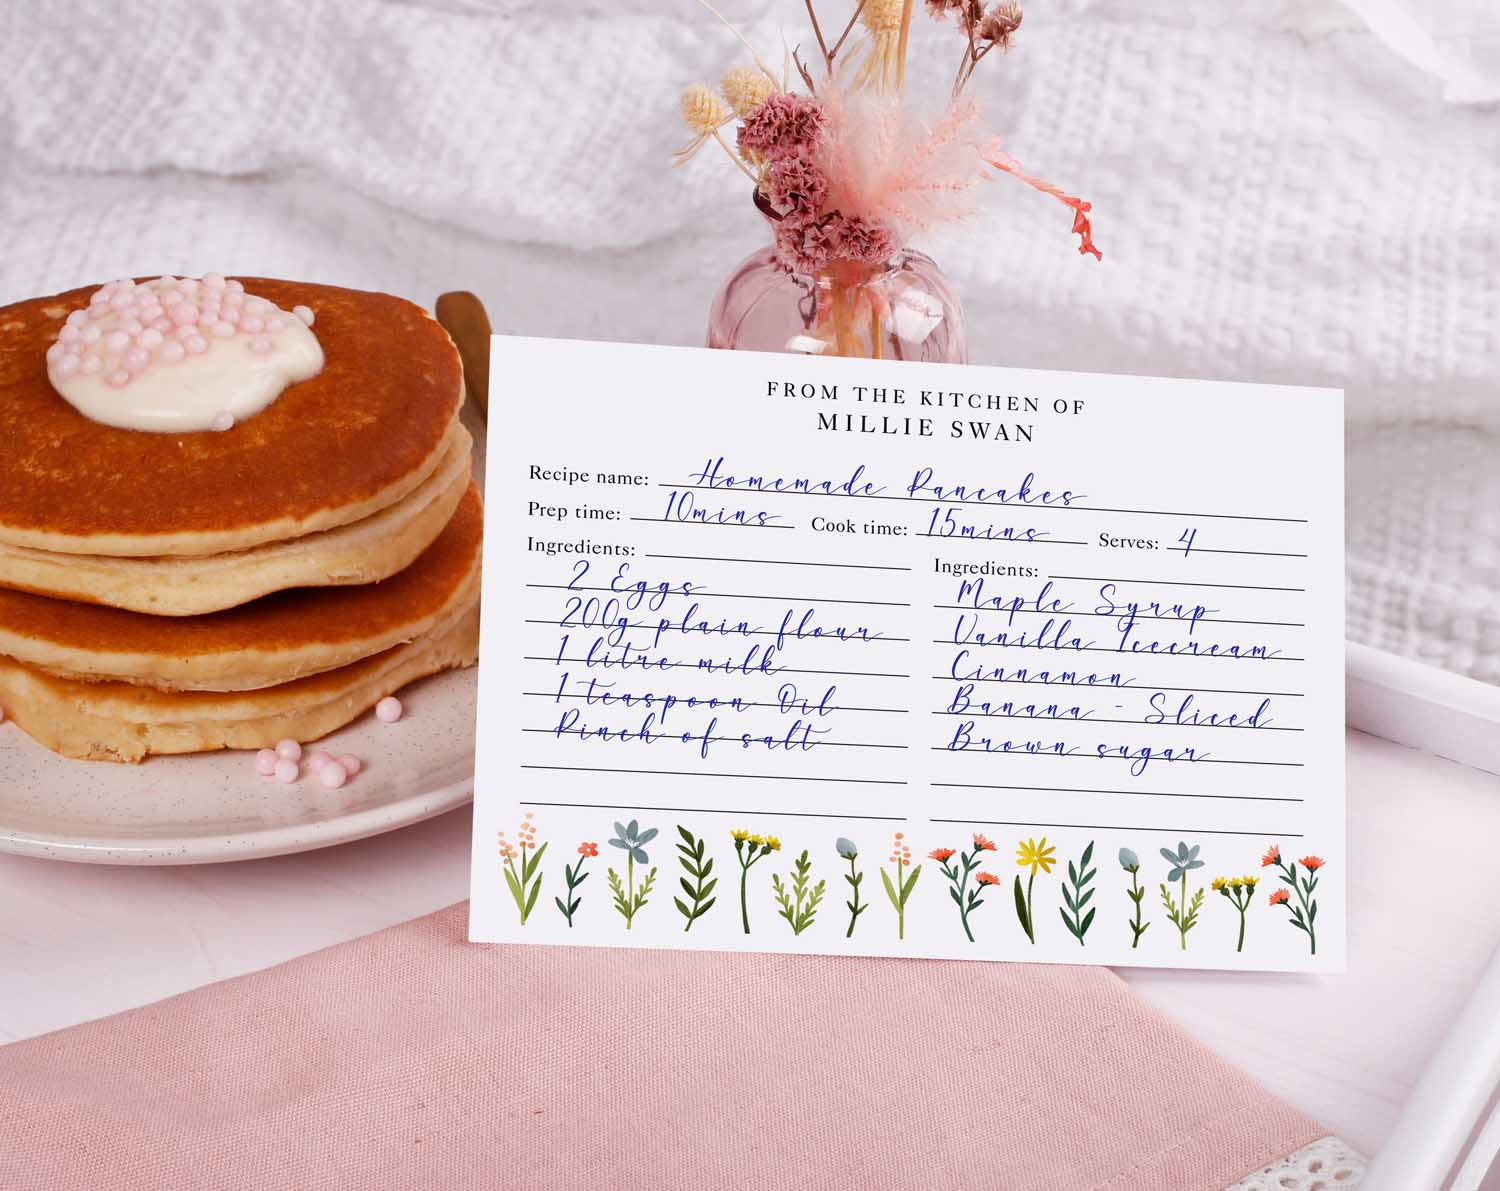 FROM THE KITCHEN OF
MILLIE SWAN
Recipe name: Homemade Pancakes
Prep time: 10mins Cook time: 15mins Serves: 4
Ingredients:
2 Eggs
200g plain flour
1 litre milk
1 teaspoon Oil
Pinch of salt
Ingredients:
Maple Syrup
Vanilla Icecream
Cinnamon
Banana - Sliced
Brown sugar